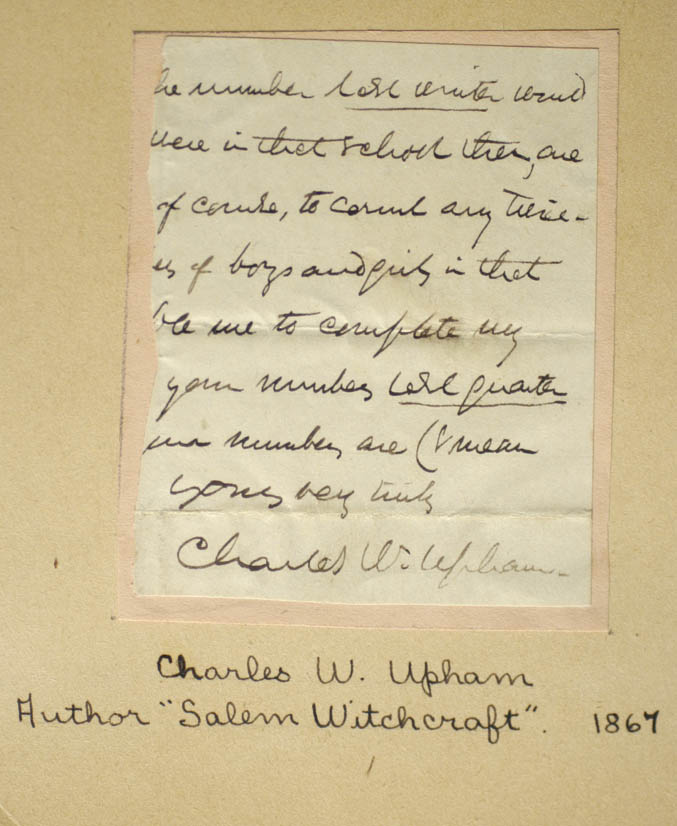 he number last winter would
were in that school then, are
of course, to count any
of boys and girls in that
ble me to complete my
your number last quarter
numbers are (I mean
yours very truly
Charles W. Upham.
Charles W. Upham
Author "Salem Witchcraft". 1867